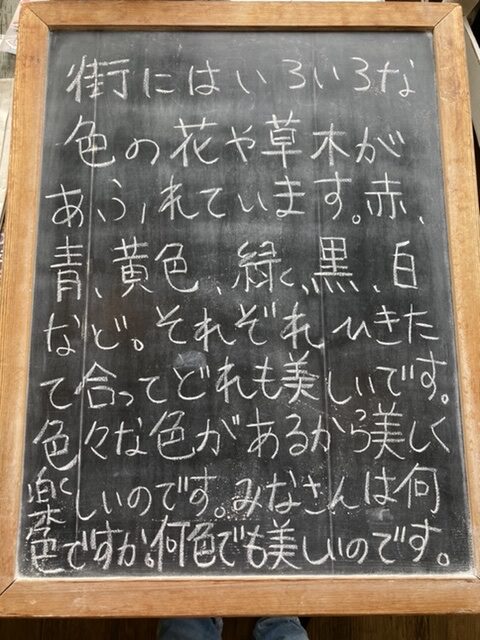 街にはいろいろな
色の花や草木が
あふれています。赤、
青、黄色、緑、黒、白
など。それぞれひきた
て合ってどれも美しいです。
色々な色があるから美しく
楽しいのです。みなさんは何
色ですか。何色でも美しいのです。